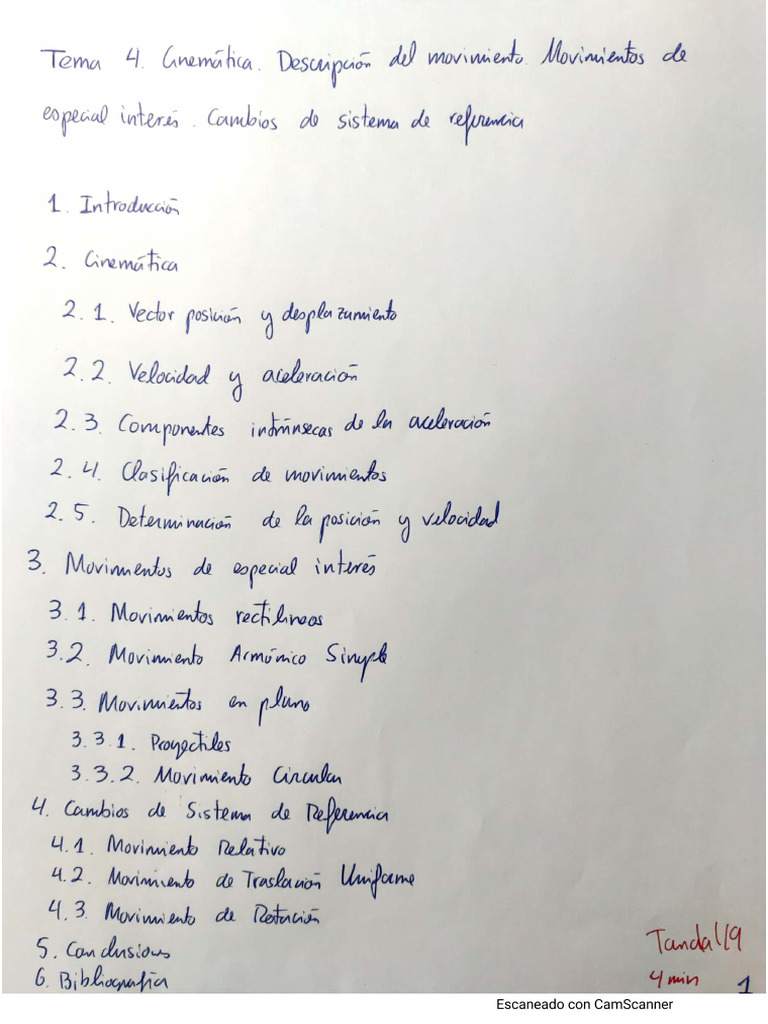 Tema 4. Cinemática. Descripción del movimiento. Movimientos de
especial interés. Cambios de sistema de referencia
1. Introducción
2. Cinemática
2.1. Vector posición y desplazamiento
2.2. Velocidad y aceleración
2.3. Componentes intrínsecas de la aceleración
2.4. Clasificación de movimientos
2.5. Determinación de la posición y velocidad
3. Movimientos de especial interés
3.1. Movimientos rectilíneos
3.2. Movimiento Armónico Simple
3.3. Movimientos en plano
3.3.1. Proyectiles
3.3.2. Movimiento Circular
4. Cambios de Sistema de Referencia
4.1. Movimiento Relativo
4.2. Movimiento de Traslación Uniforme
4.3. Movimiento de Rotación
5. Conclusiones
6. Bibliografía
4 min 1
Escaneado con CamScanner